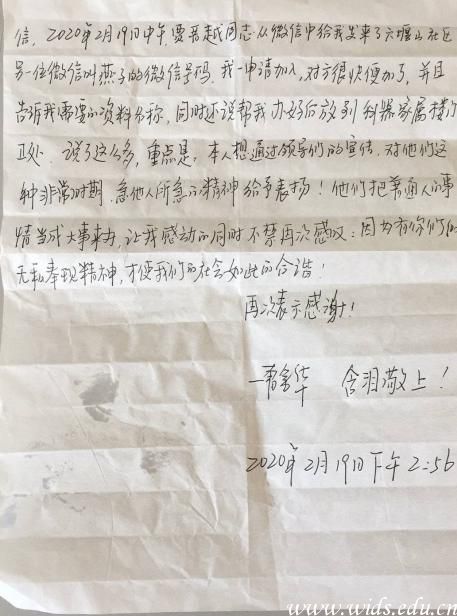 信，2020年2月19日中午，贾晋越同志从微信中给我发来了六堰山社区
另一位微信叫燕子的微信号码，我一申请加入，对方很快便加了，并且
告诉我需要的资料名称，同时还说帮我办好后放到科器家属楼门
卫处。说了这么多，重点是，本人想通过领导们的宣传，对他们这
种非常时期，急他人所急的精神给予表扬！他们把普通人的事
情当成大事来办，让我感动的同时不禁再次感叹：因为有你们的
无私奉现精神，才使我们的社会如此的合谐！
再次表示感谢！
含泪敬上！
2020年2月19日下午2:56
www.wids.edu.cn